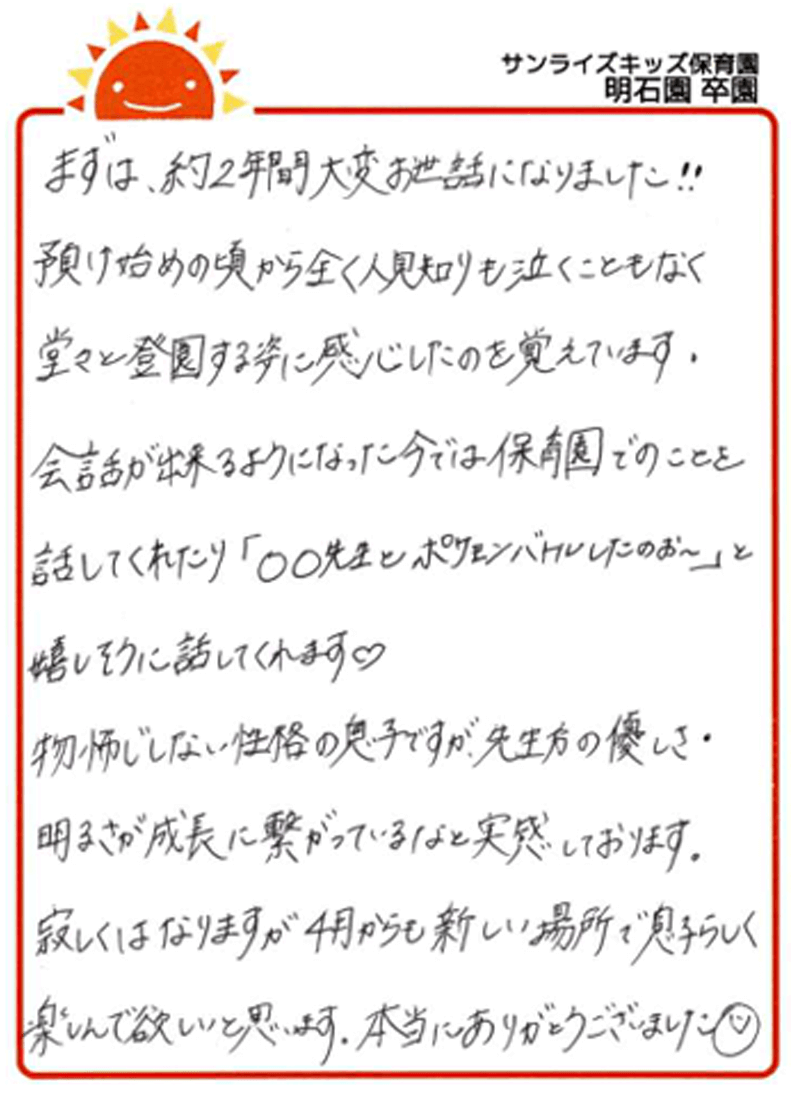 サンライズキッズ保育園
明石園 卒園
まずは、約2年間大変お世話になりました!!
預け始めの頃から全く人見知りも泣くこともなく
堂々と登園する姿に感心したのを覚えています.
会話が出来るようになった今では保育園でのことを
話してくれたり「〇〇先生とポケモンバトルしたのぉ〜」と
嬉しそうに話してくれます♡
物怖じしない性格の息子ですが、先生方の優しさ・
明るさが成長に繋がっているなと実感しております。
寂しくはなりますが4月からも新しい場所で息子らしく
楽しんで欲しいと思います。本当にありがとうございました☺